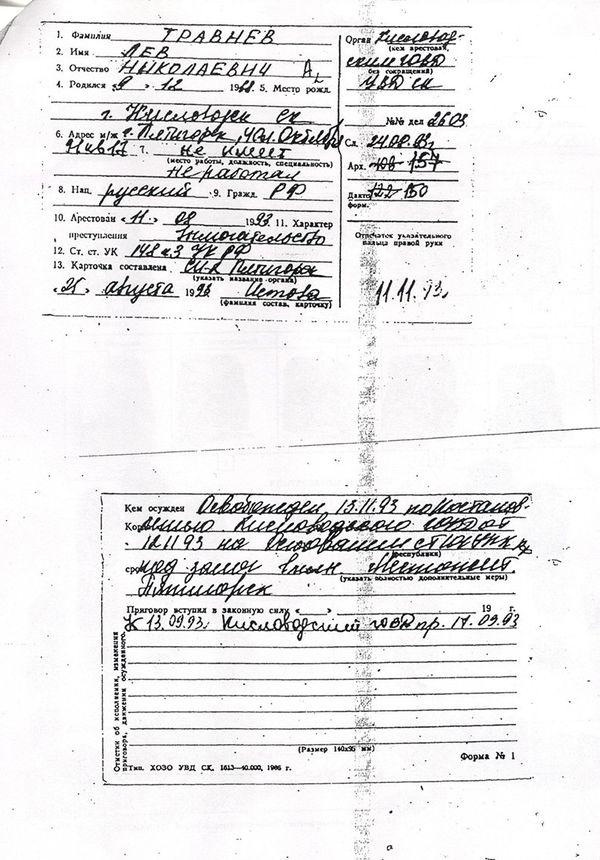 1. Фамилия ТРАВНЕВ
2. Имя ЛЕВ
3. Отчество НИКОЛАЕВИЧ
4. Родился « 9 » 12 1968 5. Место рожд.
г. Кисловодск СК
6. Адрес м/ж г. Пятигорск, ул. Октября
7. не имеет
(место работы, должность, специальность)
не работал
8. Нац. русский 9. Гражд. РФ
10. Арестован « 11 » 08 1993. 11. Характер
преступления Вымогательство
12. Ст. ст. УК 148 ч.3 УК РФ
13. Карточка составлена Пятигорск
(указать название органа)
августа 199
(фамилия состав. карточку)
Орган Кисловод-
(кем арестован,
ским ГОВД
без сокращений)
УВД СК
№№ дел 2603
Сл. 24.08.93г.
Арх. 157
Дакто 122-150
форм.
Отпечаток указательного
пальца правой руки
11.11.93г.
Кем осужден Освобожден 13.11.93 по постанов-
лению Кисловодского ГОВД от
12.11.93 на основании ст.
(республики)
под залог
(указать полностью дополнительные меры)
Пятигорск
Приговор вступил в законную силу « » 19 г.
К 13.09.93г. Кисловодский ГОВД пр. 17.09.93
Отметки об исполнении, изменении
приговора, движении осужденного.
(Размер 140x95 мм)
Тип. ХОЗО УВД СК, 1613—40.000, 1986 г.
Форма № 1